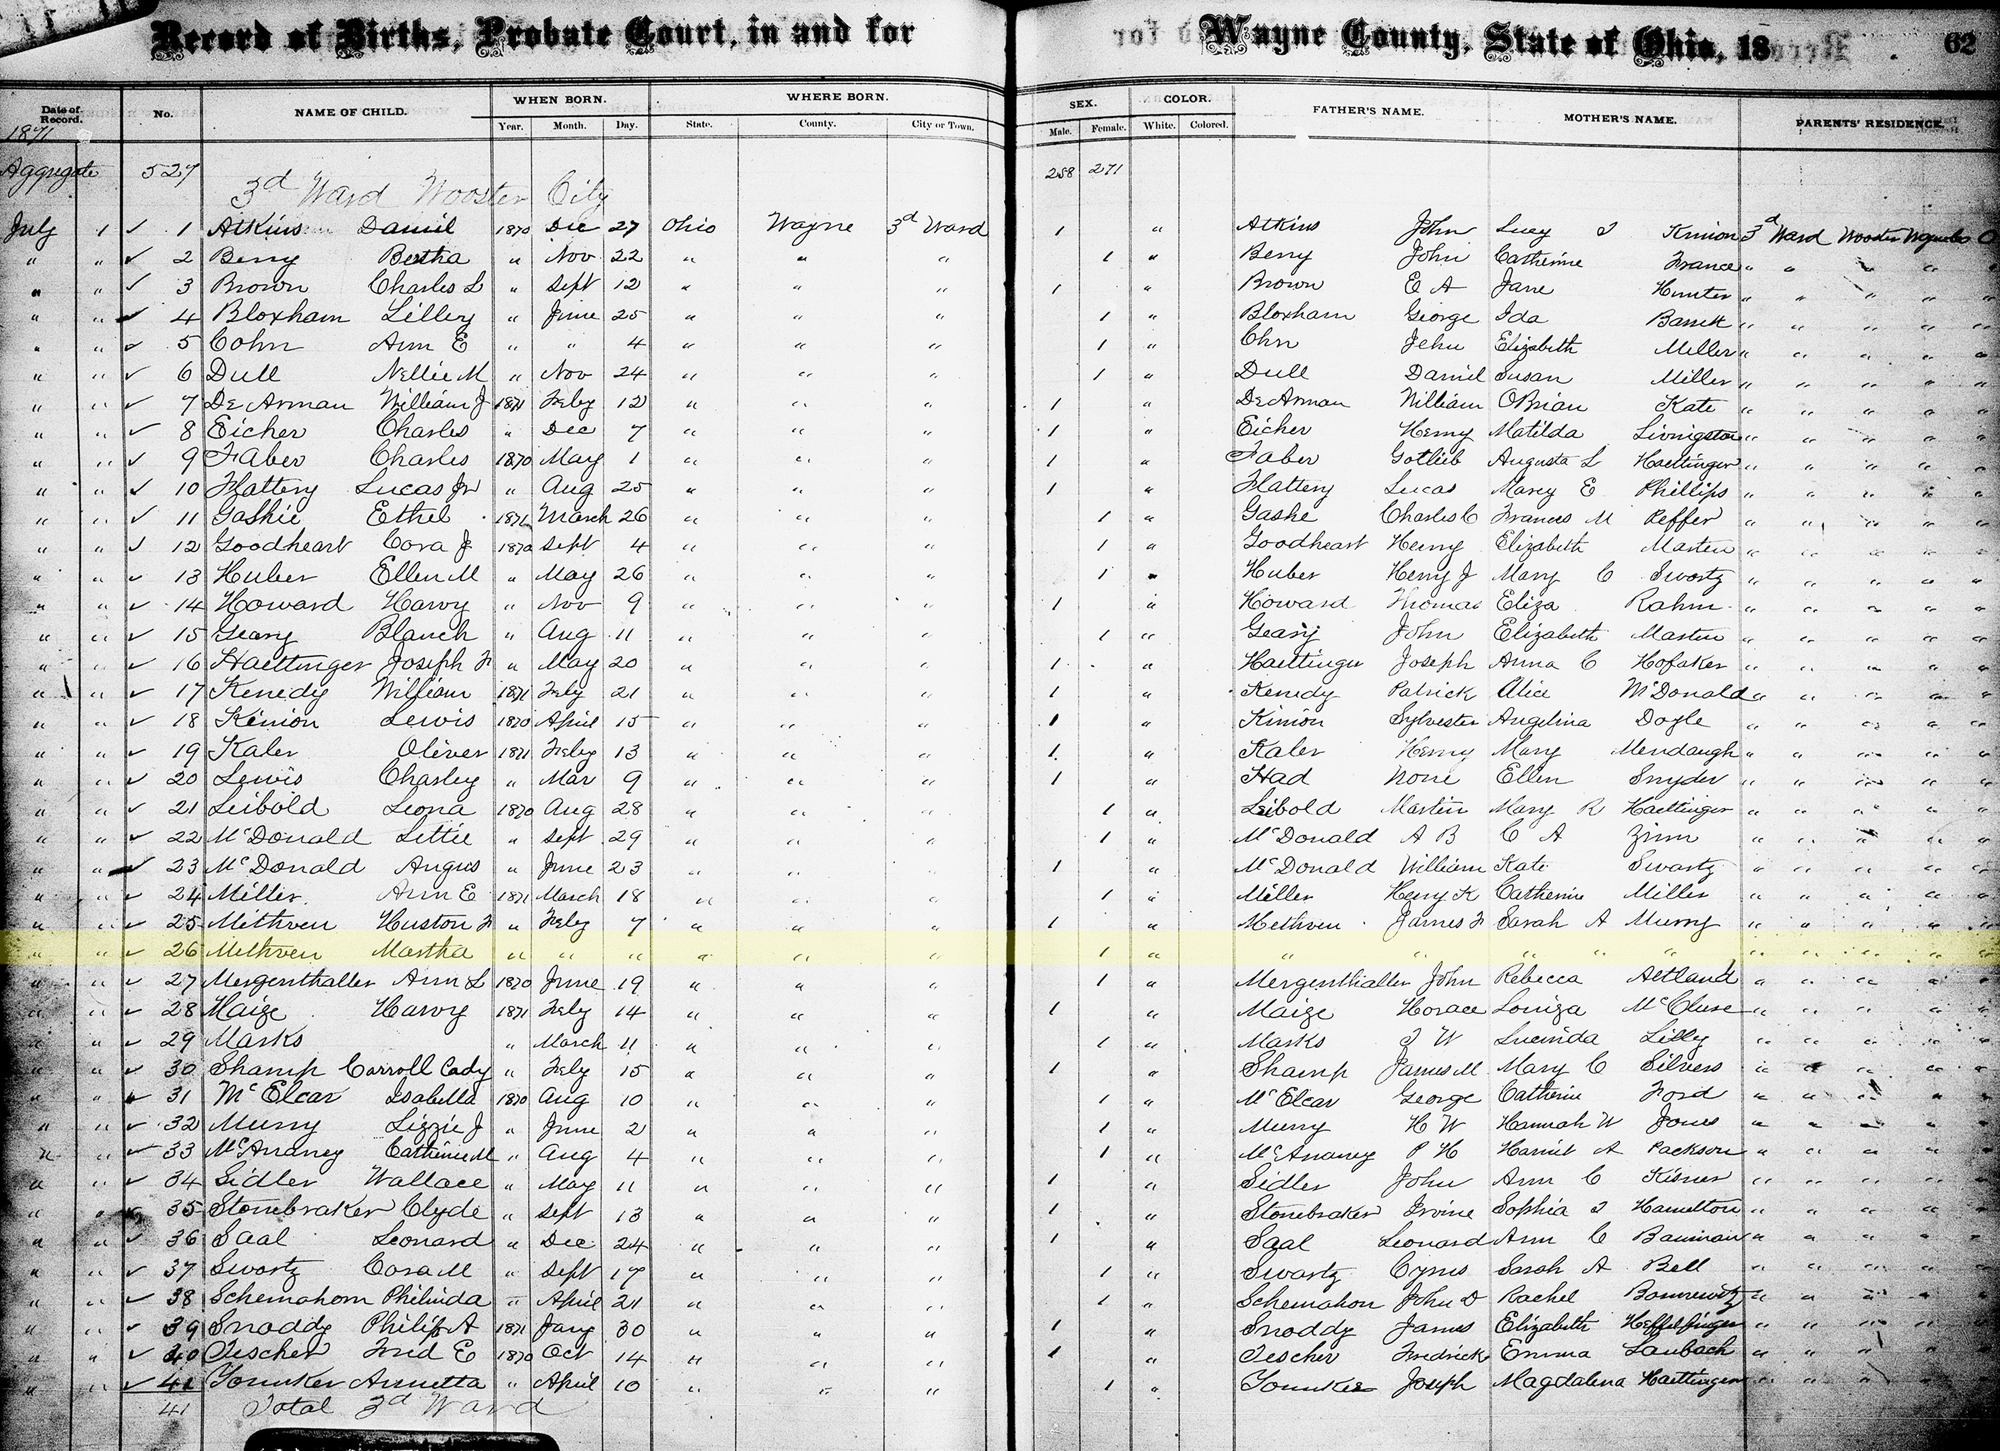 Record of Births, Probate Court, in and for Wayne County, State of Ohio, 18 62
Date of Record. No. NAME OF CHILD. WHEN BORN. Year. Month. Day. WHERE BORN. State. County. City or Town. SEX. Male. Female. COLOR. White. Colored. FATHER'S NAME. MOTHER'S NAME. PARENTS' RESIDENCE.
1871
Aggregate 527 258 271
3d Ward Wooster City
July 1 ✓ 1 Atkins Daniel 1870 Dec 27 Ohio Wayne 3d Ward 1 " Atkins John Lucy Kinion 3d Ward Wooster Wayne Co O
" " ✓ 2 Berry Bertha " Nov 22 " " " 1 " Berry John Catherine France " " " " "
" " ✓ 3 Brown Charles L " Sept 12 " " " 1 " Brown E A Jane Hunter " " " " "
" " ✓ 4 Bloxham Lilley " June 25 " " " 1 " Bloxham George Ida Barrett " " " " "
" " ✓ 5 Cohn Ann E " " 4 " " " 1 " Elizabeth Miller " " " " "
" " ✓ 6 Dull Nellie M " Nov 24 " " " 1 " Dull Daniel Susan Miller " " " " "
" " ✓ 7 DeArman William J 1871 Feby 12 " " " 1 " DeArman William OBrian Kate " " " " "
" " ✓ 8 Eicher Charles " Dec 7 " " " 1 " Eicher Henry Matilda Livingston " " " " "
" " ✓ 9 Faber Charles 1870 May 1 " " " 1 " Faber Gotlieb Augusta L Haettinger " " " " "
" " ✓ 10 Flattery Lucas Jr " Aug 25 " " " 1 " Flattery Lucas Mary E Phillips " " " " "
" " ✓ 11 Gashie Ethel 1871 March 26 " " " 1 " Gashe Charles C Frances M Peffer " " " " "
" " ✓ 12 Goodheart Cora J 1870 Sept 4 " " " 1 " Goodheart Henry Elizabeth Marten " " " " "
" " ✓ 13 Huber Ellen M " May 26 " " " 1 " Huber Henry J Mary C Swartz " " " " "
" " ✓ 14 Howard Harvy " Nov 9 " " " 1 " Howard Thomas Eliza Rahm " " " " "
" " ✓ 15 Geary Blanch " Aug 11 " " " 1 " Geary John Elizabeth Martin " " " " "
" " ✓ 16 Haettinger Joseph Jr " May 20 " " " 1 " Haettinger Joseph Anna C Hofaker " " " " "
" " ✓ 17 Kenedy William 1871 Feby 21 " " " 1 " Kenedy Patrick Alice McDonald " " " " "
" " ✓ 18 Kinion Lewis 1870 April 15 " " " 1 " Kinion Sylvester Angelina Doyle " " " " "
" " ✓ 19 Kaler Oliver 1871 Feby 13 " " " 1 " Kaler Henry Mary Mendaugh " " " " "
" " ✓ 20 Lewis Charley " Mar 9 " " " 1 " Had None Ellen Snyder " " " " "
" " ✓ 21 Leibold Leona 1870 Aug 28 " " " 1 " Leibold Martin Mary R Haettinger " " " " "
" " ✓ 22 McDonald Lettie " Sept 29 " " " 1 " McDonald A B C A Zinn " " " " "
" " ✓ 23 McDonald Angus " June 23 " " " 1 " McDonald William Kate Swartz " " " " "
" " ✓ 24 Miller Ann E 1871 March 18 " " " 1 " Miller Henry K Catherine Miller " " " " "
" " ✓ 25 Methven Huston F " Feby 7 " " " 1 " Methven James F Sarah A Murry " " " " "
" " ✓ 26 Methven Martha " " " " " " 1 " " " " " " " " " " "
" " ✓ 27 Mergenthaller Ann L 1870 June 19 " " " 1 " Mergenthaller John Rebecca Altland " " " " "
" " ✓ 28 Maize Harvy 1871 Feby 14 " " " 1 " Maize Horace Louiza McClure " " " " "
" " ✓ 29 Marks " March 11 " " " 1 " Marks W Lucinda Lilly " " " " "
" " ✓ 30 Shamp Carroll Cady " Feby 15 " " " 1 " Shamp James M Mary C Silvers " " " " "
" " ✓ 31 McElcar Isabella 1870 Aug 10 " " " 1 " McElcar George Catherine Ford " " " " "
" " ✓ 32 Murry Lizzie J " June 2 " " " 1 " Murry H W Hannah W Jones " " " " "
" " ✓ 33 McAnaney Catherine M " Aug 4 " " " 1 " McAnaney P H Harriet A Packson " " " " "
" " ✓ 34 Sidler Wallace " May 11 " " " 1 " Sidler John Ann C Kisner " " " " "
" " ✓ 35 Stonebraker Clyde " Sept 13 " " " 1 " Stonebraker Irvine Sophia Hamelton " " " " "
" " ✓ 36 Saal Leonard " Dec 24 " " " 1 " Saal Leonard Ann C Bauman " " " " "
" " ✓ 37 Swartz Cora M " Sept 17 " " " 1 " Swartz Cyrus Sarah A Bell " " " " "
" " ✓ 38 Schemahorn Philinda " April 21 " " " 1 " Schemahon John D Rachel " " " " "
" " ✓ 39 Snoddy Philip A 1871 Jany 30 " " " 1 " Snoddy James Elizabeth Heffelfinger " " " " "
" " ✓ 40 Tescher Fred E 1870 Oct 14 " " " 1 " Tescher Fredrick Emma Laubach " " " " "
" " ✓ 41 Younker Annetta " April 10 " " " 1 " Younker Joseph Magdalena Haettinger " " " " "
41 Total 3d Ward